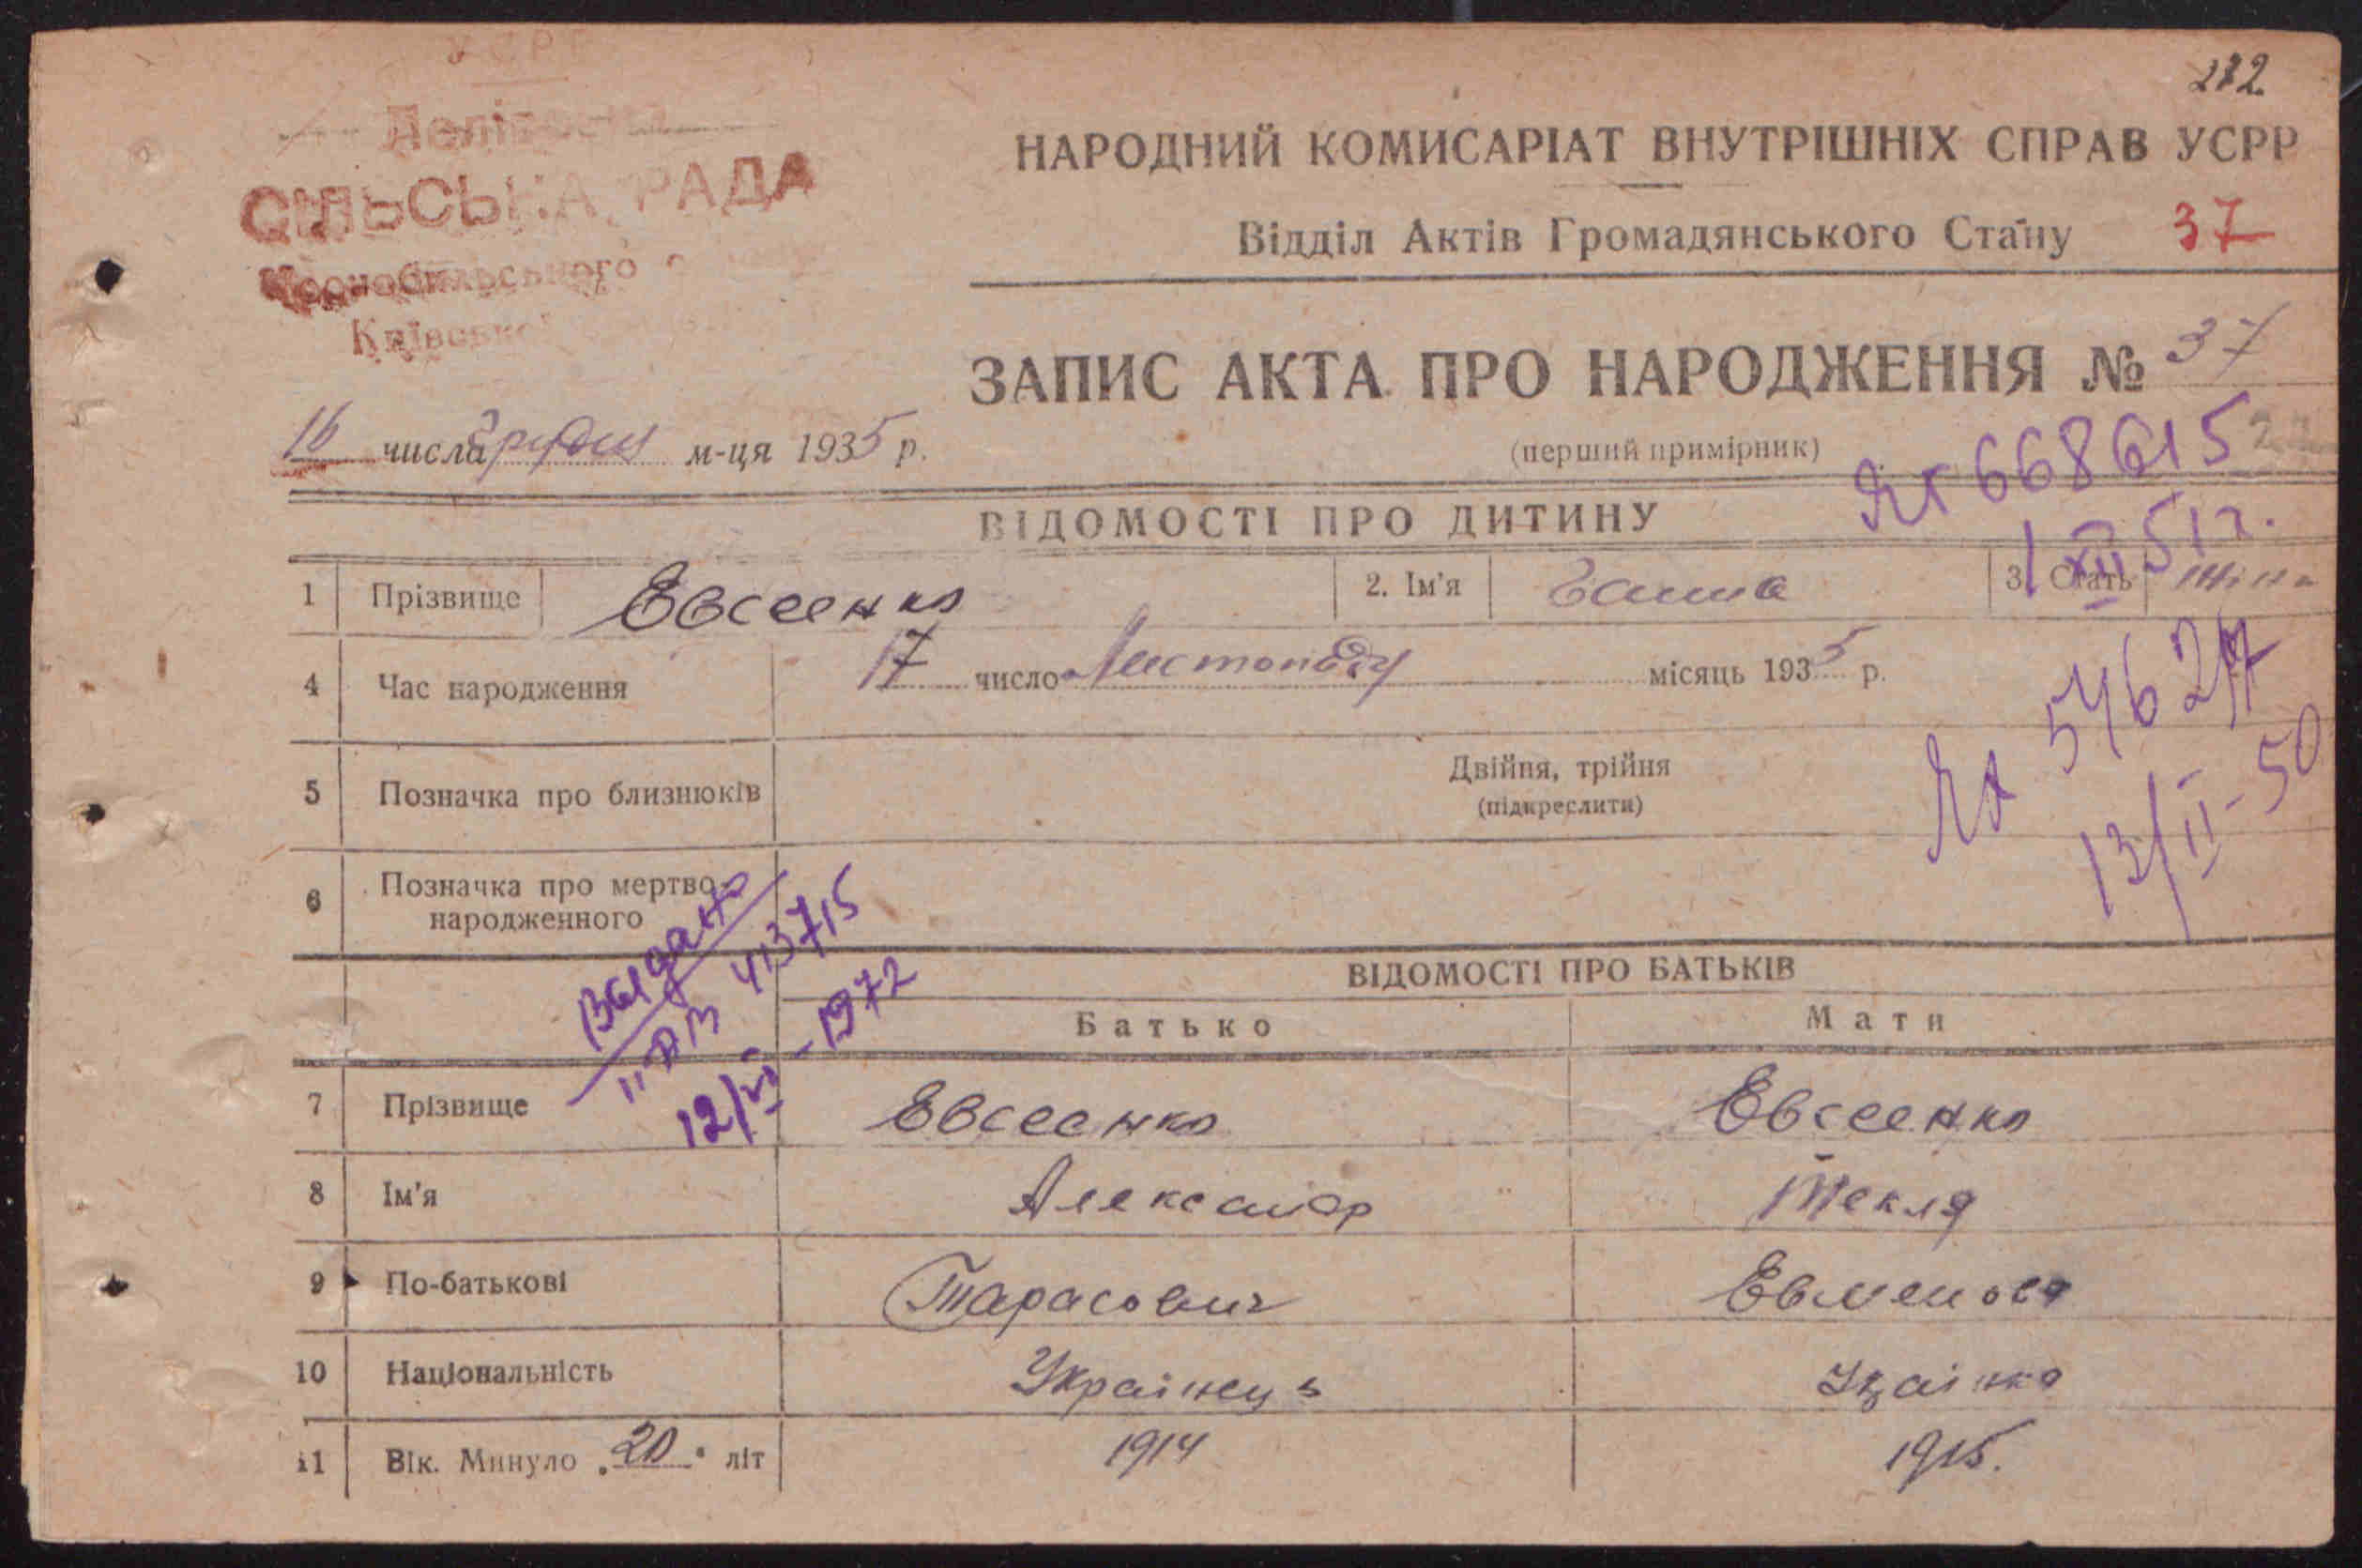 УСРР
СІЛЬСЬКА РАДА
Чорнобильського
Київської
282
НАРОДНИЙ КОМИСАРІАТ ВНУТРІШНІХ СПРАВ УСРР
Відділ Актів Громадянського Стану 37
ЗАПИС АКТА ПРО НАРОДЖЕННЯ № 37
(перший примірник)
16 числа грудня м-ця 1935 р.
668615
1 XII 51 г.
ВІДОМОСТІ ПРО ДИТИНУ
1 Прізвище Евсеенко 2. Ім'я Ганна 3. Стать жін
4 Час народження 17 число Листопаду місяць 1935 р.
54627
13/II-50
5 Позначка про близнюків Двійня, трійня
(підкреслити)
6 Позначка про мертво-
народженного
Выдано
413715
12/VI-1972
ВІДОМОСТІ ПРО БАТЬКІВ
Батько Мати
7 Прізвище Евсеенко Евсеенко
8 Ім'я Александр Текля
9 По-батькові Тарасович Евменова
10 Національність Українець
11 Вік. Минуло „20" літ 1914 1915.